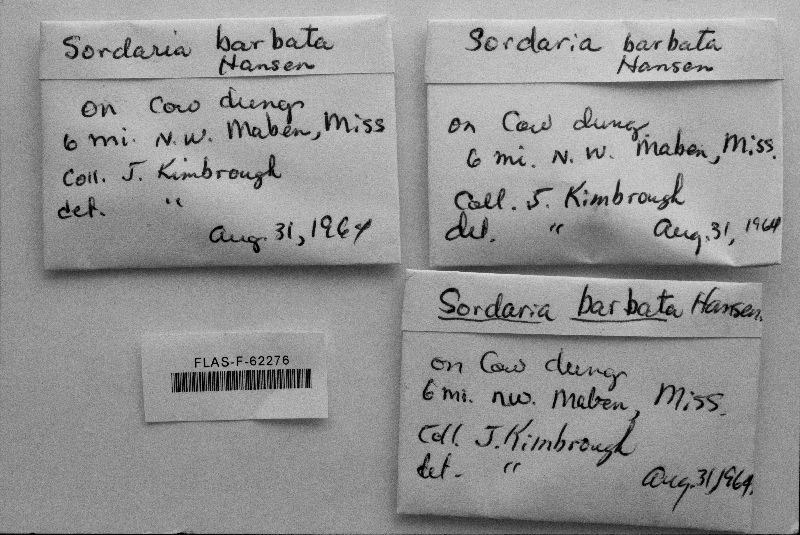 Sordaria barbata
Hansen
on Cow dung
6 mi. N.W. Maben, Miss
Coll. J. Kimbrough
det. "
Aug. 31, 1964
Sordaria barbata
Hansen
on Cow dung
6 mi. N.W. Maben, Miss.
Coll. J. Kimbrough
det. " Aug. 31, 1964
FLAS-F-62276
Sordaria barbata Hansen.
on Cow dung
6 mi. NW. Maben, Miss.
Coll. J. Kimbrough
det. " Aug. 31, 1964.